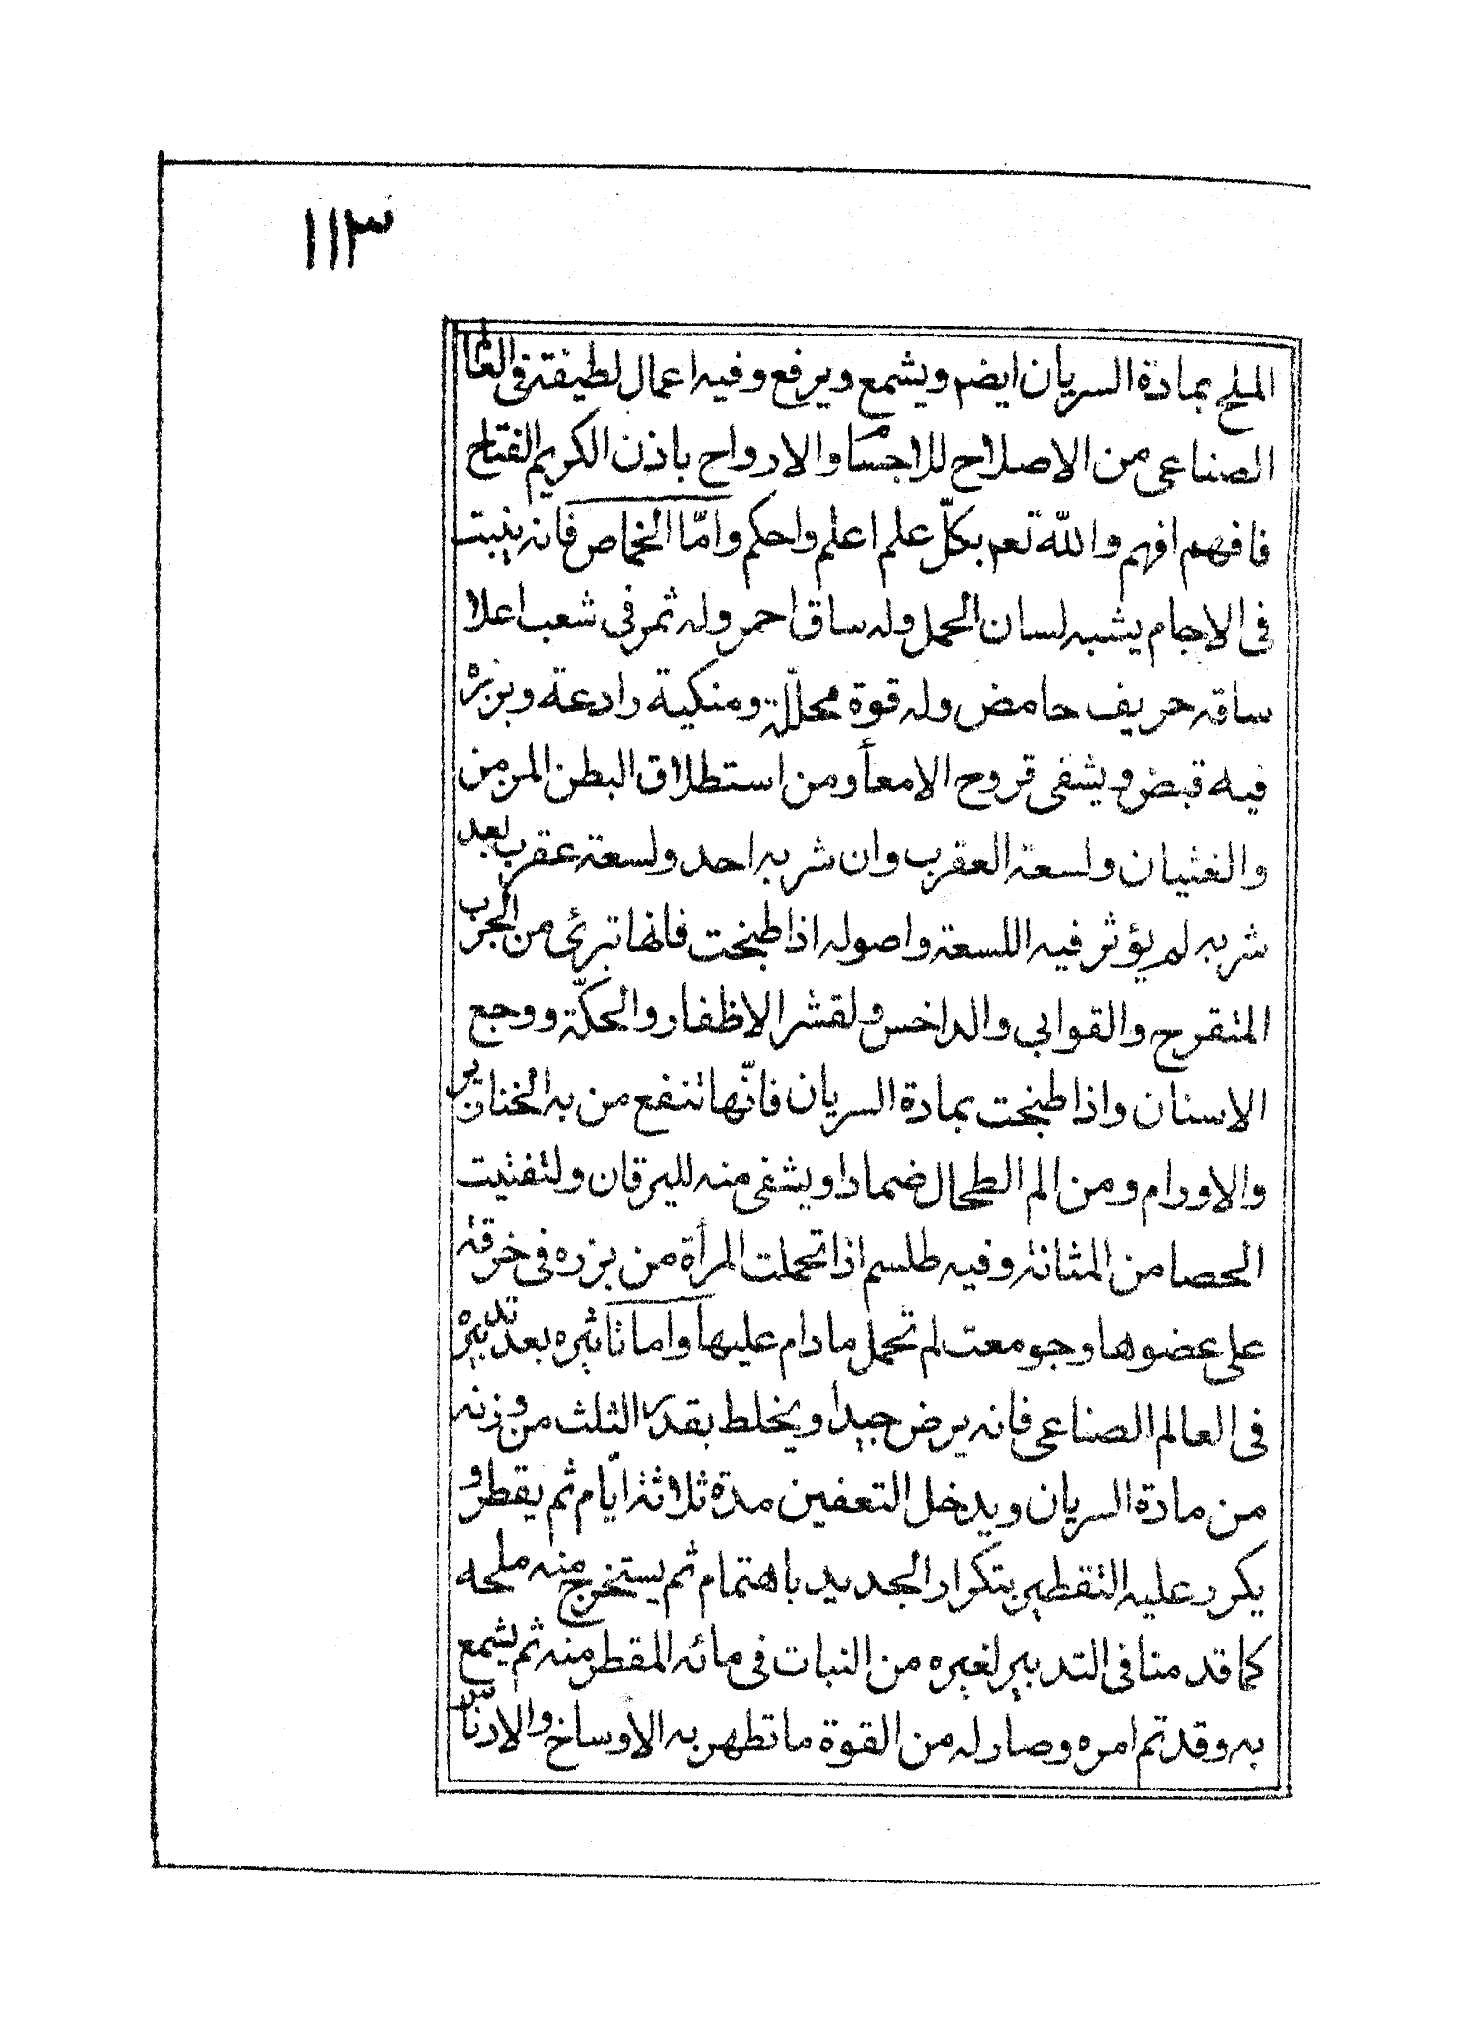 ١١٣
الملح بمادة السريان ايضم ويشمع ويرفع وفيه اعمال لطيفة فى العالم
الصناعى من الاصلاح للاجسام والارواح باذن الكريم الفتاح
فافهم افهم والله تعم بكلّ علم اعلم واحكم وامّا الخماض فانه ينبت
فى الاجام يشبه لسان الحمل وله ساق احمر وله ثمر فى شعب اعلا
ساقه حريف حامض وله قوة محلّلة ومنكية رادعة وبزره
فيه قبض ويشفى قروح الامعأ ومن استطلاق البطن المزمن
والغثيان ولسعة العقرب وان شربه احد ولسعته عقرب بعد
شربه لم يؤثر فيه اللسعة واصوله اذا طبخت فانها تبرئ من الجرب
المتقرح والقوابى والداخس ولقشر الاظفار والحكّة ووجع
الاسنان واذا طبخت بمادة السريان فانّها تنفع من به الخنازير
والاورام ومن الم الطحال ضمادا ويشفى منه لليرقان ولتفتيت
الحصا من المثانة وفيه طلسم اذا تحملت المرأة من بزره فى خرقة
على عضوها وجومعت لم تحمل مادام عليها واما تاثيره بعد تدبيره
فى العالم الصناعى فانه يرض جيدا ويخلط بقدر الثلث من وزنه
من مادة السريان ويدخل التعفين مدة ثلاثة ايّام ثم يقطر و
يكرر عليه التقطير بتكرار الجديد باهتمام ثم يستخرج منه ملحه
كما قدمنا فى التدبير لغيره من النبات فى مائه المقطر منه ثم يشمع
به وقد تم امره وصار له من القوة ما تطهر به الاوساخ والادناس